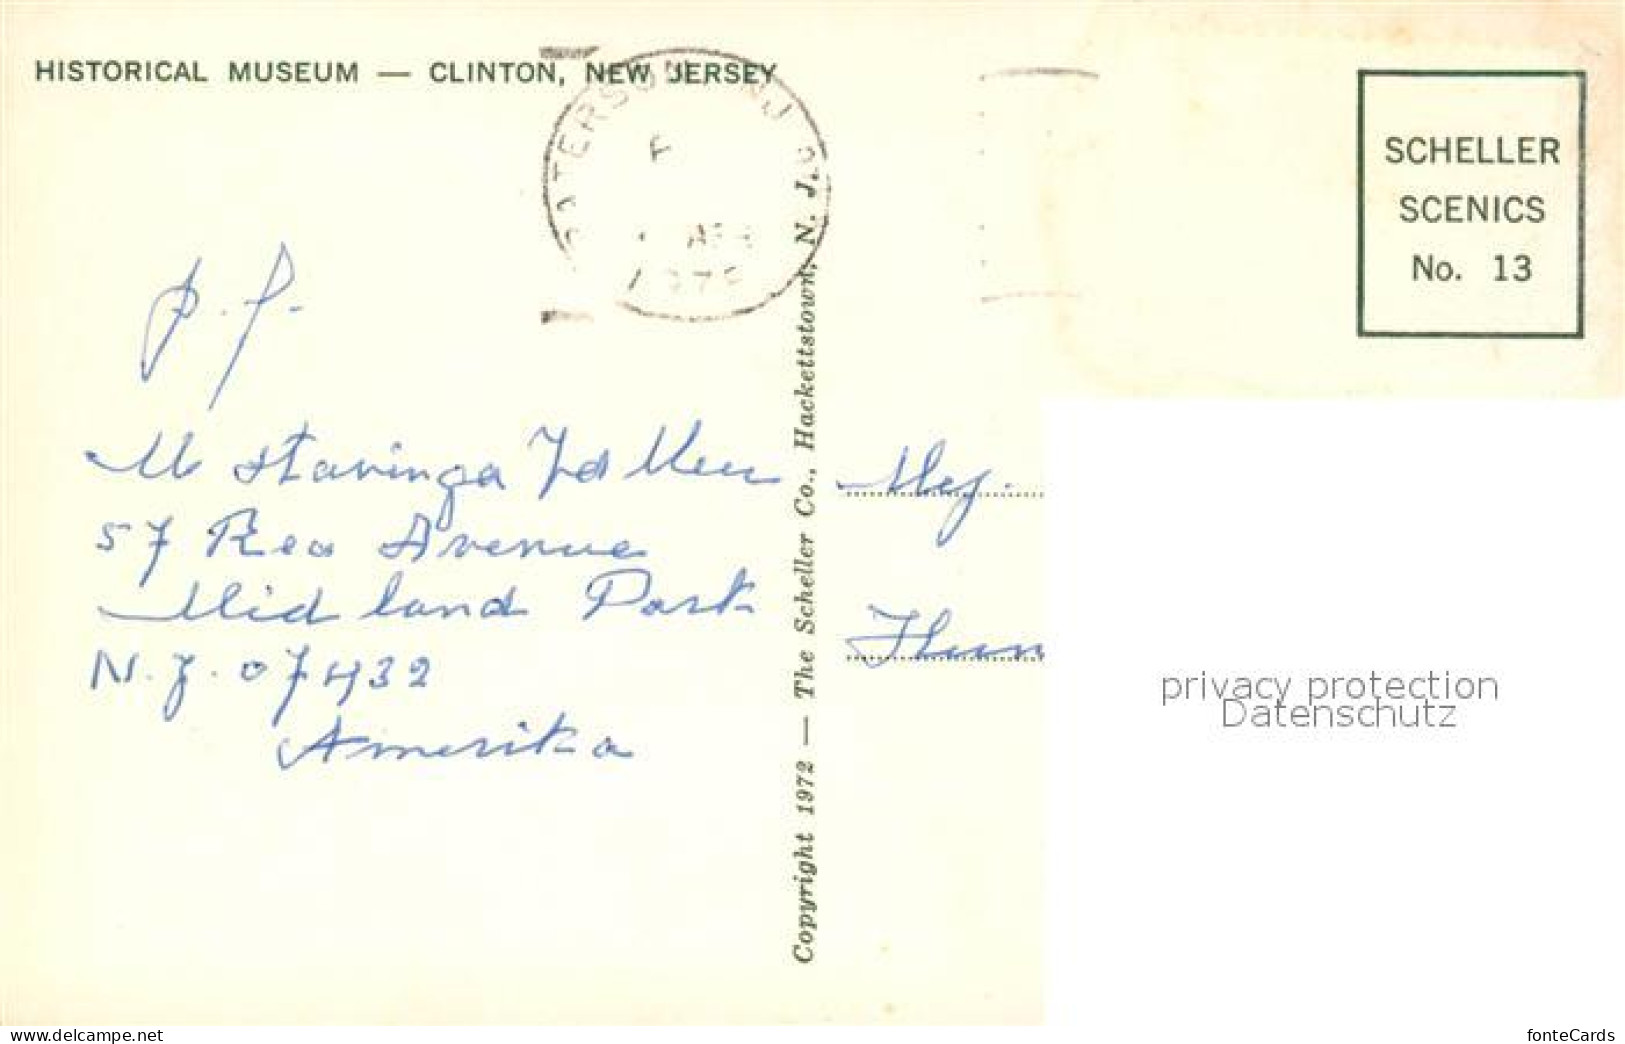 HISTORICAL MUSEUM — CLINTON, NEW JERSEY
PATERSON NJ
1972
SCHELLER
SCENICS
No. 13
p. f.
M Stavinga
57 Rea Avenue
Midland Park
N.J. 07432
Amerika
Mej.
Copyright 1972 — The Scheller Co., Hackettstown, N. J.
privacy protection
Datenschutz
www.delcampe.net
fonteCards